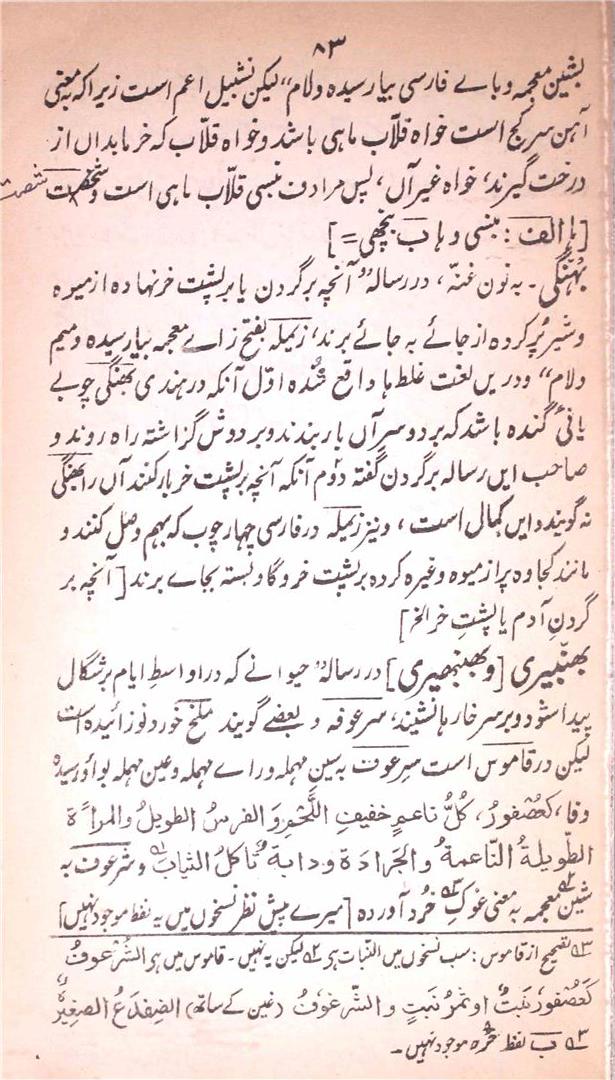 ۸۳
بشین معجمہ و باے فارسی بیار سیدہ و لام“ لیکن نشپیل اعم است زیرا کہ بہ معنی
آہن سر کج است خواہ قلّاب ماہی باشد و خواہ قلّاب کہ خرما بداں از
درخت گیرند، خواہ غیر آں، پس مرادف بنسی قلّاب ماہی است و شصت
[با الف : بنسی و ہاب پنچھی =]
بہنگی۔ بہ نون غنّہ، در رسالہ ”آنچہ بر گردن یا بر پشت خر نہادہ از میوہ
و شیر پُر کردہ از جائے بہ جائے برند، زیملہ بفتح زاے معجمہ بیار سیدہ و میم
و لام“ و دریں لغت غلط ہا واقع شدہ اوّل آنکہ در ہندی بھنگی چوبے
یا نیٔ گندہ باشد کہ بر دو سر آں بار بندند و بر دوش گزاشتہ راہ روند و
صاحب ایں رسالہ بر گردن گفتہ دوم آنکہ آنچہ بر پشت خر بار کنند آں را بھنگی
نہ گویند و ایں کمال است، و نیز زیملہ در فارسی چہار چوب کہ بہم وصل کنند و
مانند کجاوہ پر از میوہ وغیرہ کردہ بر پشت خر و گاو بستہ بجاے برند [آنچہ بر
گردن آدم یا پشتِ خر الخ]
بھنبیری [و بھنبھیری] در رسالہ ”حیوانے کہ در اواسط ایام برشگال
پیدا شود و بر سر خار ہا نشیند، سرعوفہ و بعضے گویند ملخ خورد نوزائیدہ است
لیکن در قاموس است سرعوف بہ سین مہملہ و راے مہملہ و عین مہملہ بواؤ رسیدہ
و فا، کعُصفُورُ، کُلُّ ناعمٍ خفیفِ اللَّحمِ و الفرسُ الطویلُ و المراۃ
الطّویلۃُ النّاعمۃُ و الجرادۃ و دابۃ تاکلُ الثیابَ و شرعوف بہ
شین معجمہ بہ معنی غوک خُرد آوردہ [میرے پیش نظر نسخوں میں یہ لفظ موجود نہیں]
تصحیح از قاموس : سب نسخوں میں النبات ہی لیکن یہ نہیں۔ قاموس میں ہی الشرعوفُ
کعُصفورٍ نَبتٌ او ثمرُ نبتٍ و الشّرغوفُ (غین کے ساتھ) الضِفدَعُ الصغیرُ
۵۳ ب لفظ خُردہ موجود نہیں۔